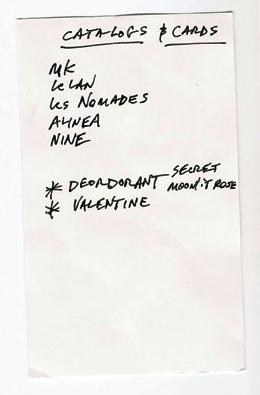 CATALOGS & CARDS
MK
le LAN
les NOMADES
ALINEA
NINE
* DEORDORANT SECRET
MOONLIT ROSE
* VALENTINE